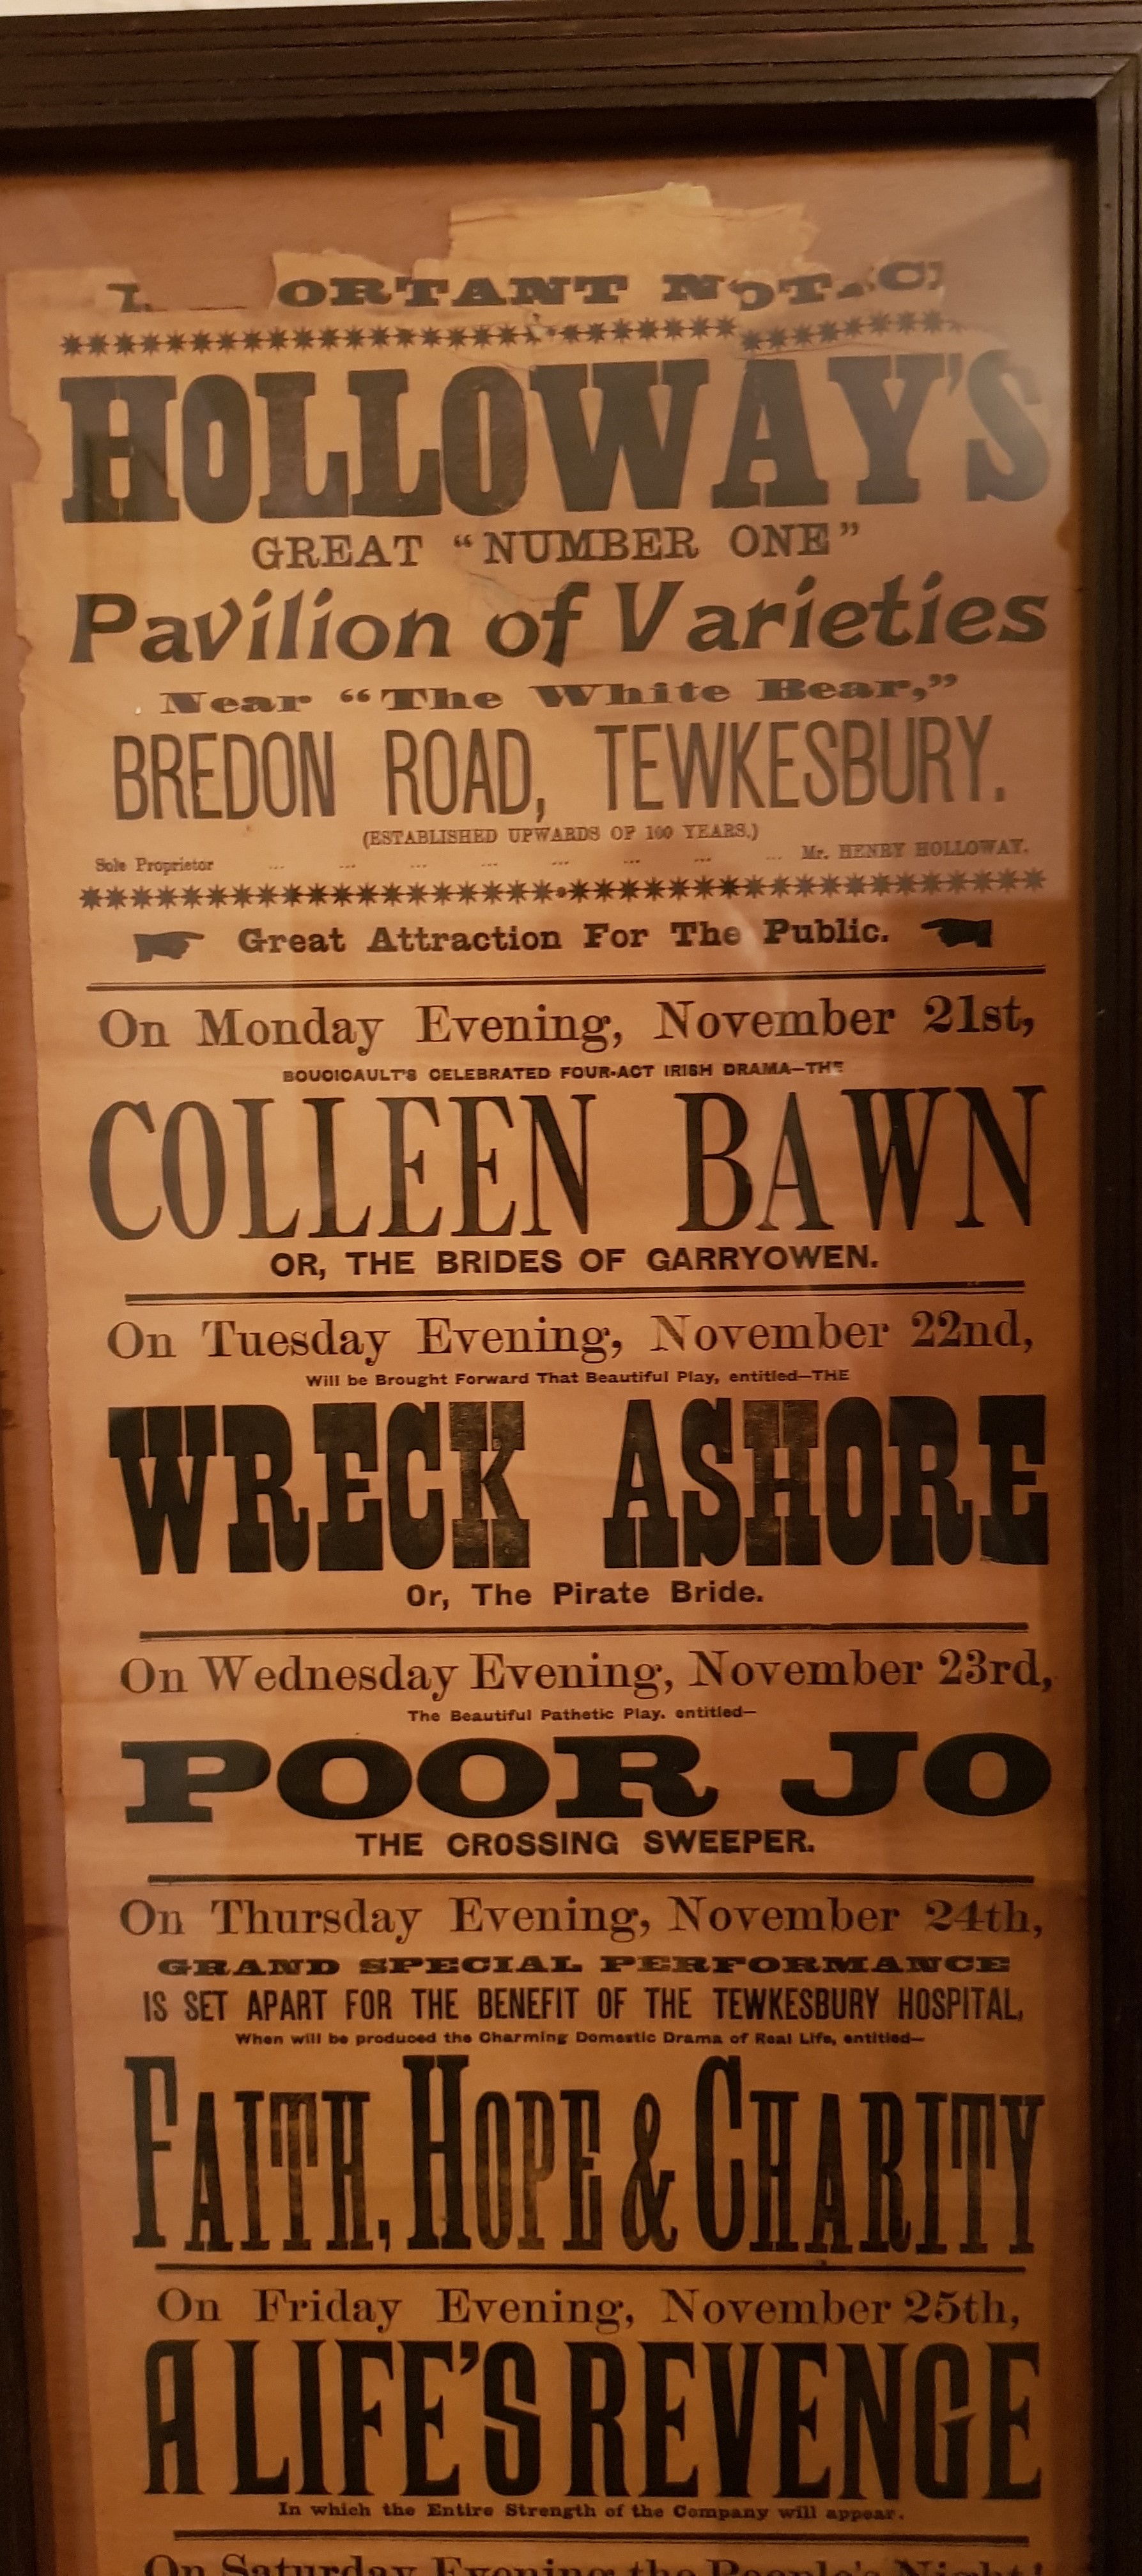 ORTANT
HOLLOWAY'S
GREAT “NUMBER ONE”
Pavilion of Varieties
Near “The White Bear,”
BREDON ROAD, TEWKESBURY.
(ESTABLISHED UPWARDS OF 100 YEARS.)
Sole Proprietor ... ... ... ... ... ... ... ... Mr. HENRY HOLLOWAY.
Great Attraction For The Public.
On Monday Evening, November 21st,
BOUCICAULT'S CELEBRATED FOUR-ACT IRISH DRAMA—THE
COLLEEN BAWN
OR, THE BRIDES OF GARRYOWEN.
On Tuesday Evening, November 22nd,
Will be Brought Forward That Beautiful Play, entitled—THE
WRECK ASHORE
Or, The Pirate Bride.
On Wednesday Evening, November 23rd,
The Beautiful Pathetic Play. entitled—
POOR JO
THE CROSSING SWEEPER.
On Thursday Evening, November 24th,
GRAND SPECIAL PERFORMANCE
IS SET APART FOR THE BENEFIT OF THE TEWKESBURY HOSPITAL,
When will be produced the Charming Domestic Drama of Real Life, entitled—
FAITH, HOPE & CHARITY
On Friday Evening, November 25th,
A LIFE'S REVENGE
In which the Entire Strength of the Company will appear.
On Saturday Evening the People's Night